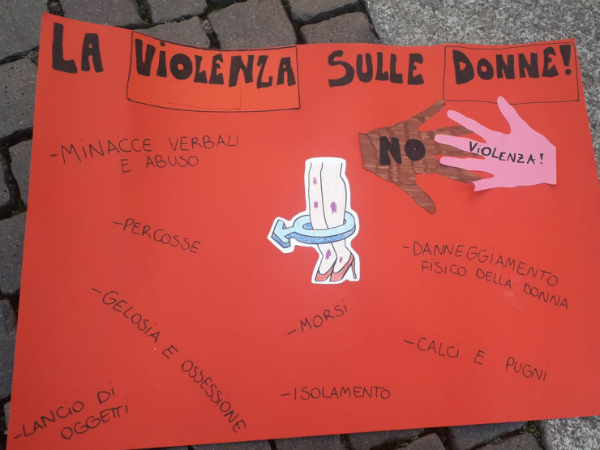 LA VIOLENZA SULLE DONNE!
NO VIOLENZA!
-MINACCE VERBALI
E ABUSO
-PERCOSSE
-DANNEGGIAMENTO
FISICO DELLA DONNA
-GELOSIA E OSSESSIONE
-MORSI
-CALCI E PUGNI
-ISOLAMENTO
-LANCIO DI
OGGETTI